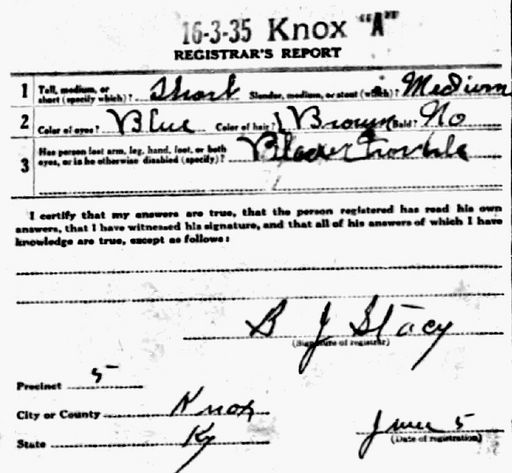 16-3-35 Knox "A"
REGISTRAR'S REPORT
1 Tall, medium, or short (specify which)? Short Slender, medium, or stout (which)? Medium
2 Color of eyes? Blue Color of hair? Brown Bald? No
3 Has person lost arm, leg, hand, foot, or both eyes, or is he otherwise disabled (specify)? Blader Trouble
I certify that my answers are true, that the person registered has read his own
answers, that I have witnessed his signature, and that all of his answers of which I have
knowledge are true, except as follows:
B J Stacy
(Signature of registrar)
Precinct 5
City or County Knox
State Ky
June 5
(Date of registration)